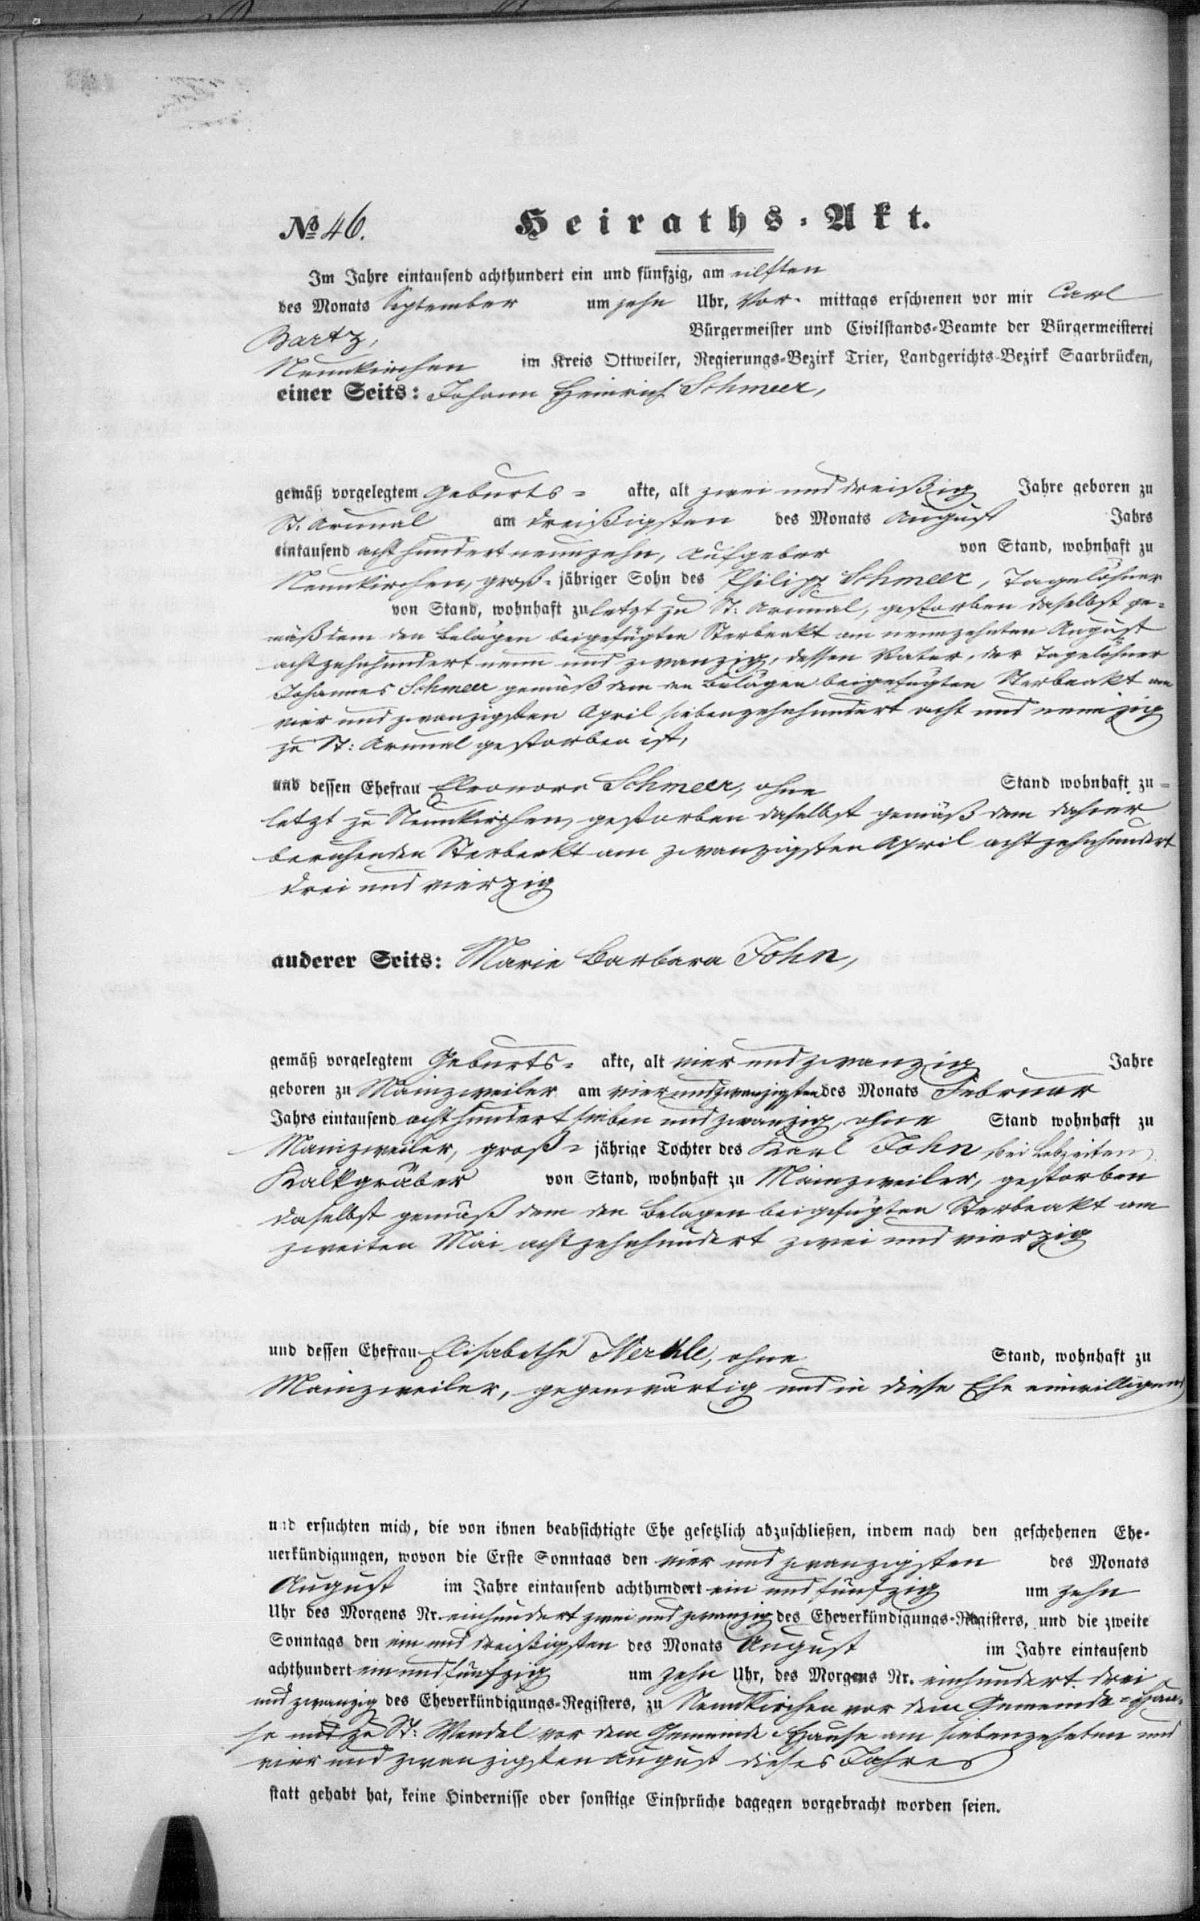 № 46. Heiraths-Akt.
Im Jahre eintausend achthundert ein und fünfzig, am eilften
des Monats September um zehn Uhr, Vor- mittags erschienen vor mir Carl
Bartz, Bürgermeister und Civilstands-Beamte der Bürgermeisterei
Neunkirchen im Kreis Ottweiler, Regierungs-Bezirk Trier, Landgerichts-Bezirk Saarbrücken,
einer Seits: Johann Heinrich Schmeer,
gemäß vorgelegtem Geburts- akte, alt zwei und dreißig Jahre geboren zu
St: Arnual am dreißigsten des Monats August Jahrs
eintausend acht hundert neunzehn, Aufgeber von Stand, wohnhaft zu
Neunkirchen, groß- jähriger Sohn des Philipp Schmeer, Tagelöhner
von Stand, wohnhaft zuletzt zu St: Arnual, gestorben daselbst ge-
mäß dem den Belägen beigefügten Sterbeakt am neunzehnten August
achtzehnhundert neun und zwanzig, dessen Vater, der Tagelöhner
Johannes Schmeer gemäß dem den Belägen beigefügten Sterbeakt am
vier und zwanzigsten April siebenzehnhundert acht und neunzig
zu St: Arnual gestorben ist,
und dessen Ehefrau Eleonore Schmeer, ohne Stand wohnhaft zu-
letzt zu Neunkirchen, gestorben daselbst gemäß dem dahier
beruhenden Sterbeakt am zwanzigsten April achtzehnhundert
drei und vierzig
anderer Seits: Marie Barbara John,
gemäß vorgelegtem Geburts- akte, alt vier und zwanzig Jahre
geboren zu Mainzweiler am vier und zwanzigsten des Monats Februar
Jahrs eintausend achthundert sieben und zwanzig, ohne Stand wohnhaft zu
Mainzweiler, groß- jährige Tochter des Karl John bei Lebzeiten
Kalkgräber von Stand, wohnhaft zu Mainzweiler, gestorben
daselbst gemäß dem den Belagen beigefügten Sterbeakt am
zweiten Mai achtzehnhundert zwei und vierzig
und dessen Ehefrau Elisabetha Werkle, ohne Stand, wohnhaft zu
Mainzweiler, gegenwärtig und in diese Ehe einwilligend
und ersuchten mich, die von ihnen beabsichtigte Ehe gesetzlich abzuschließen, indem nach den geschehenen Ehe-
verkündigungen, wovon die Erste Sonntags den vier und zwanzigsten des Monats
August im Jahre eintausend achthundert ein und fünfzig um zehn
Uhr des Morgens Nr. einhundert zwei und zwanzig des Eheverkündigungs-Registers, und die zweite
Sonntags den ein und dreißigsten des Monats August im Jahre eintausend
achthundert ein und fünfzig um zehn Uhr, des Morgens Nr. einhundert drei
und zwanzig des Eheverkündigungs-Registers, zu Neunkirchen vor dem Gemeinde-Hau-
se und zu St: Wendel vor dem Gemeinde Hause am siebenzehnten und
vier und zwanzigsten August dieses Jahres
statt gehabt hat, keine Hindernisse oder sonstige Einsprüche dagegen vorgebracht worden seien.